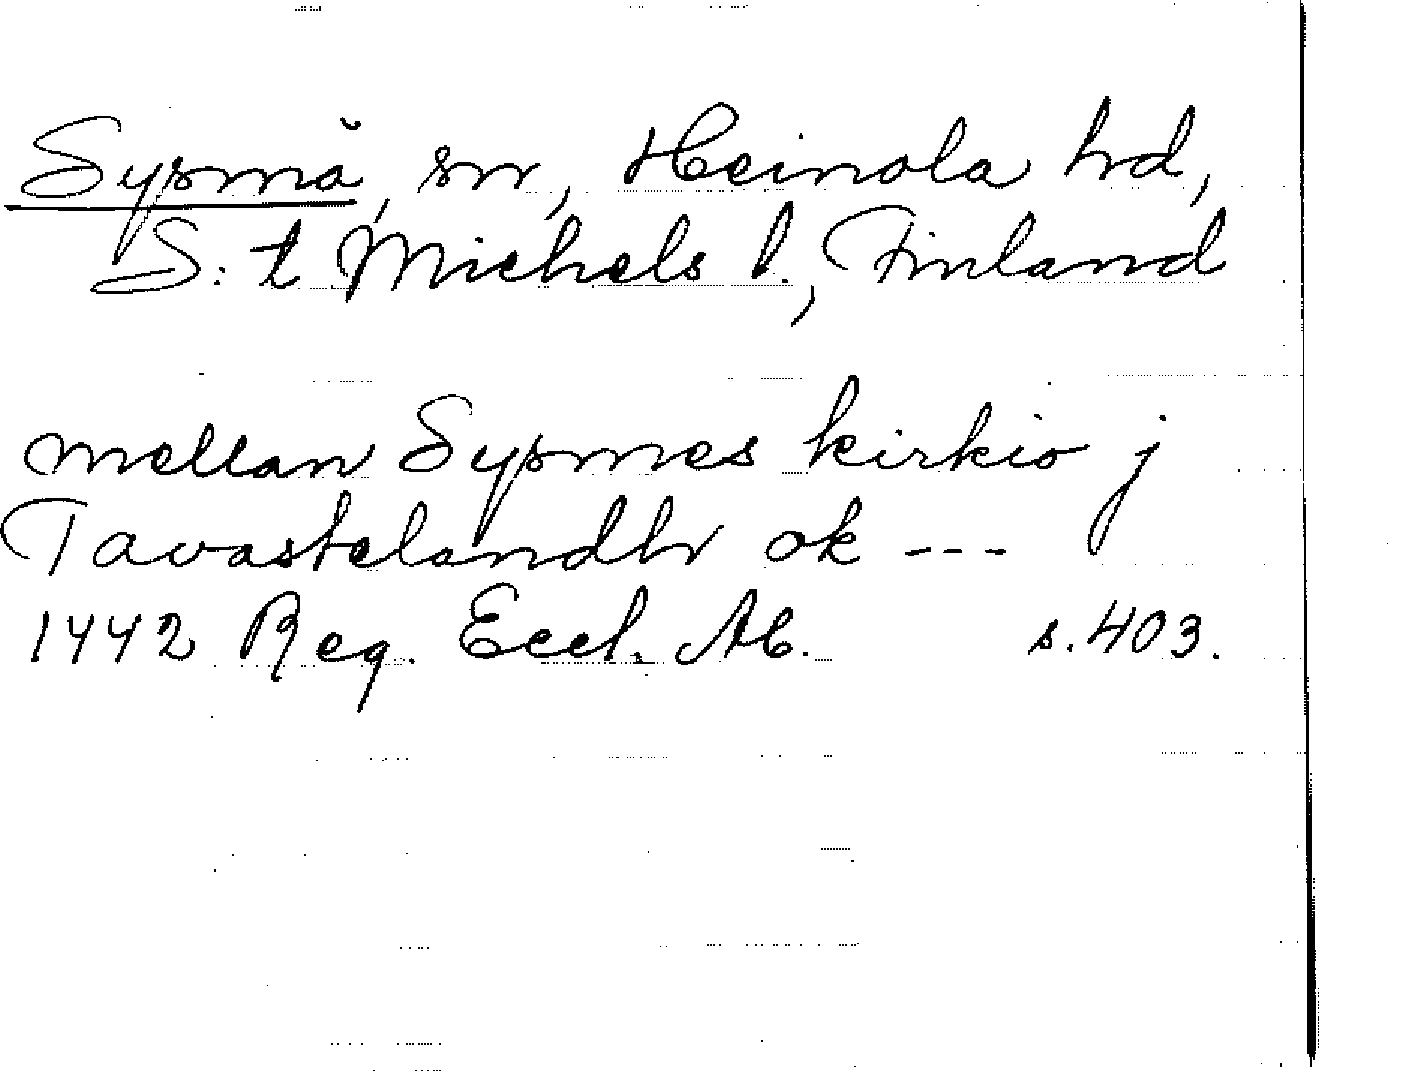 Sysmä, sn, Heinola hd,
S:t Michels l., Finland
mellan Sysmes kirkio j
Tavastelandh ok ---
1442 Reg. Eccl. Ab. s. 403.